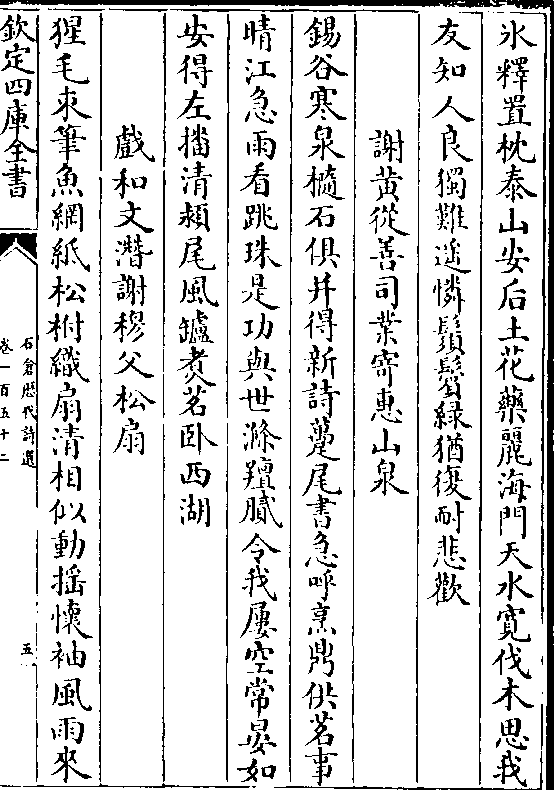 氷釋置枕泰山安后土花藥麗海門天水寛伐木思我
友知人良獨難遥憐鬚鬢緑猶復耐悲歡
謝黄從善司業寄惠山泉
錫谷寒泉橢石俱并得新詩蠆尾書急呼烹鼎供茗事
晴江急雨看跳珠是功與世滌羶膩令我屢空常晏如
安得左轓清潁尾風鑪煮茗卧西湖
戲和文潛謝穆父松扇
猩毛束筆魚網紙松柎織扇清相似動揺懐袖風雨來
欽定四庫全書
石倉歴代詩選
卷一百五十二
五